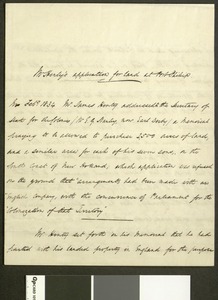 Mr Henty's application for land at Port Philip
In Feby 1834 Mr James Henty addressed the Secretary of
State for the Colonies (Mr E. G. Stanley, now Earl Derby) a Memorial
praying to be allowed to purchase 2500 acres of land,
and a similar area for each of his seven sons, on the
South Coast of New Holland, which application was refused
on the ground that "arrangements had been made with an
English Company, with the concurrence of Parliament for the
"Colonization of that Territory"
Mr Henty set forth in his Memorial that he had
parted with his landed property in England for the purpose